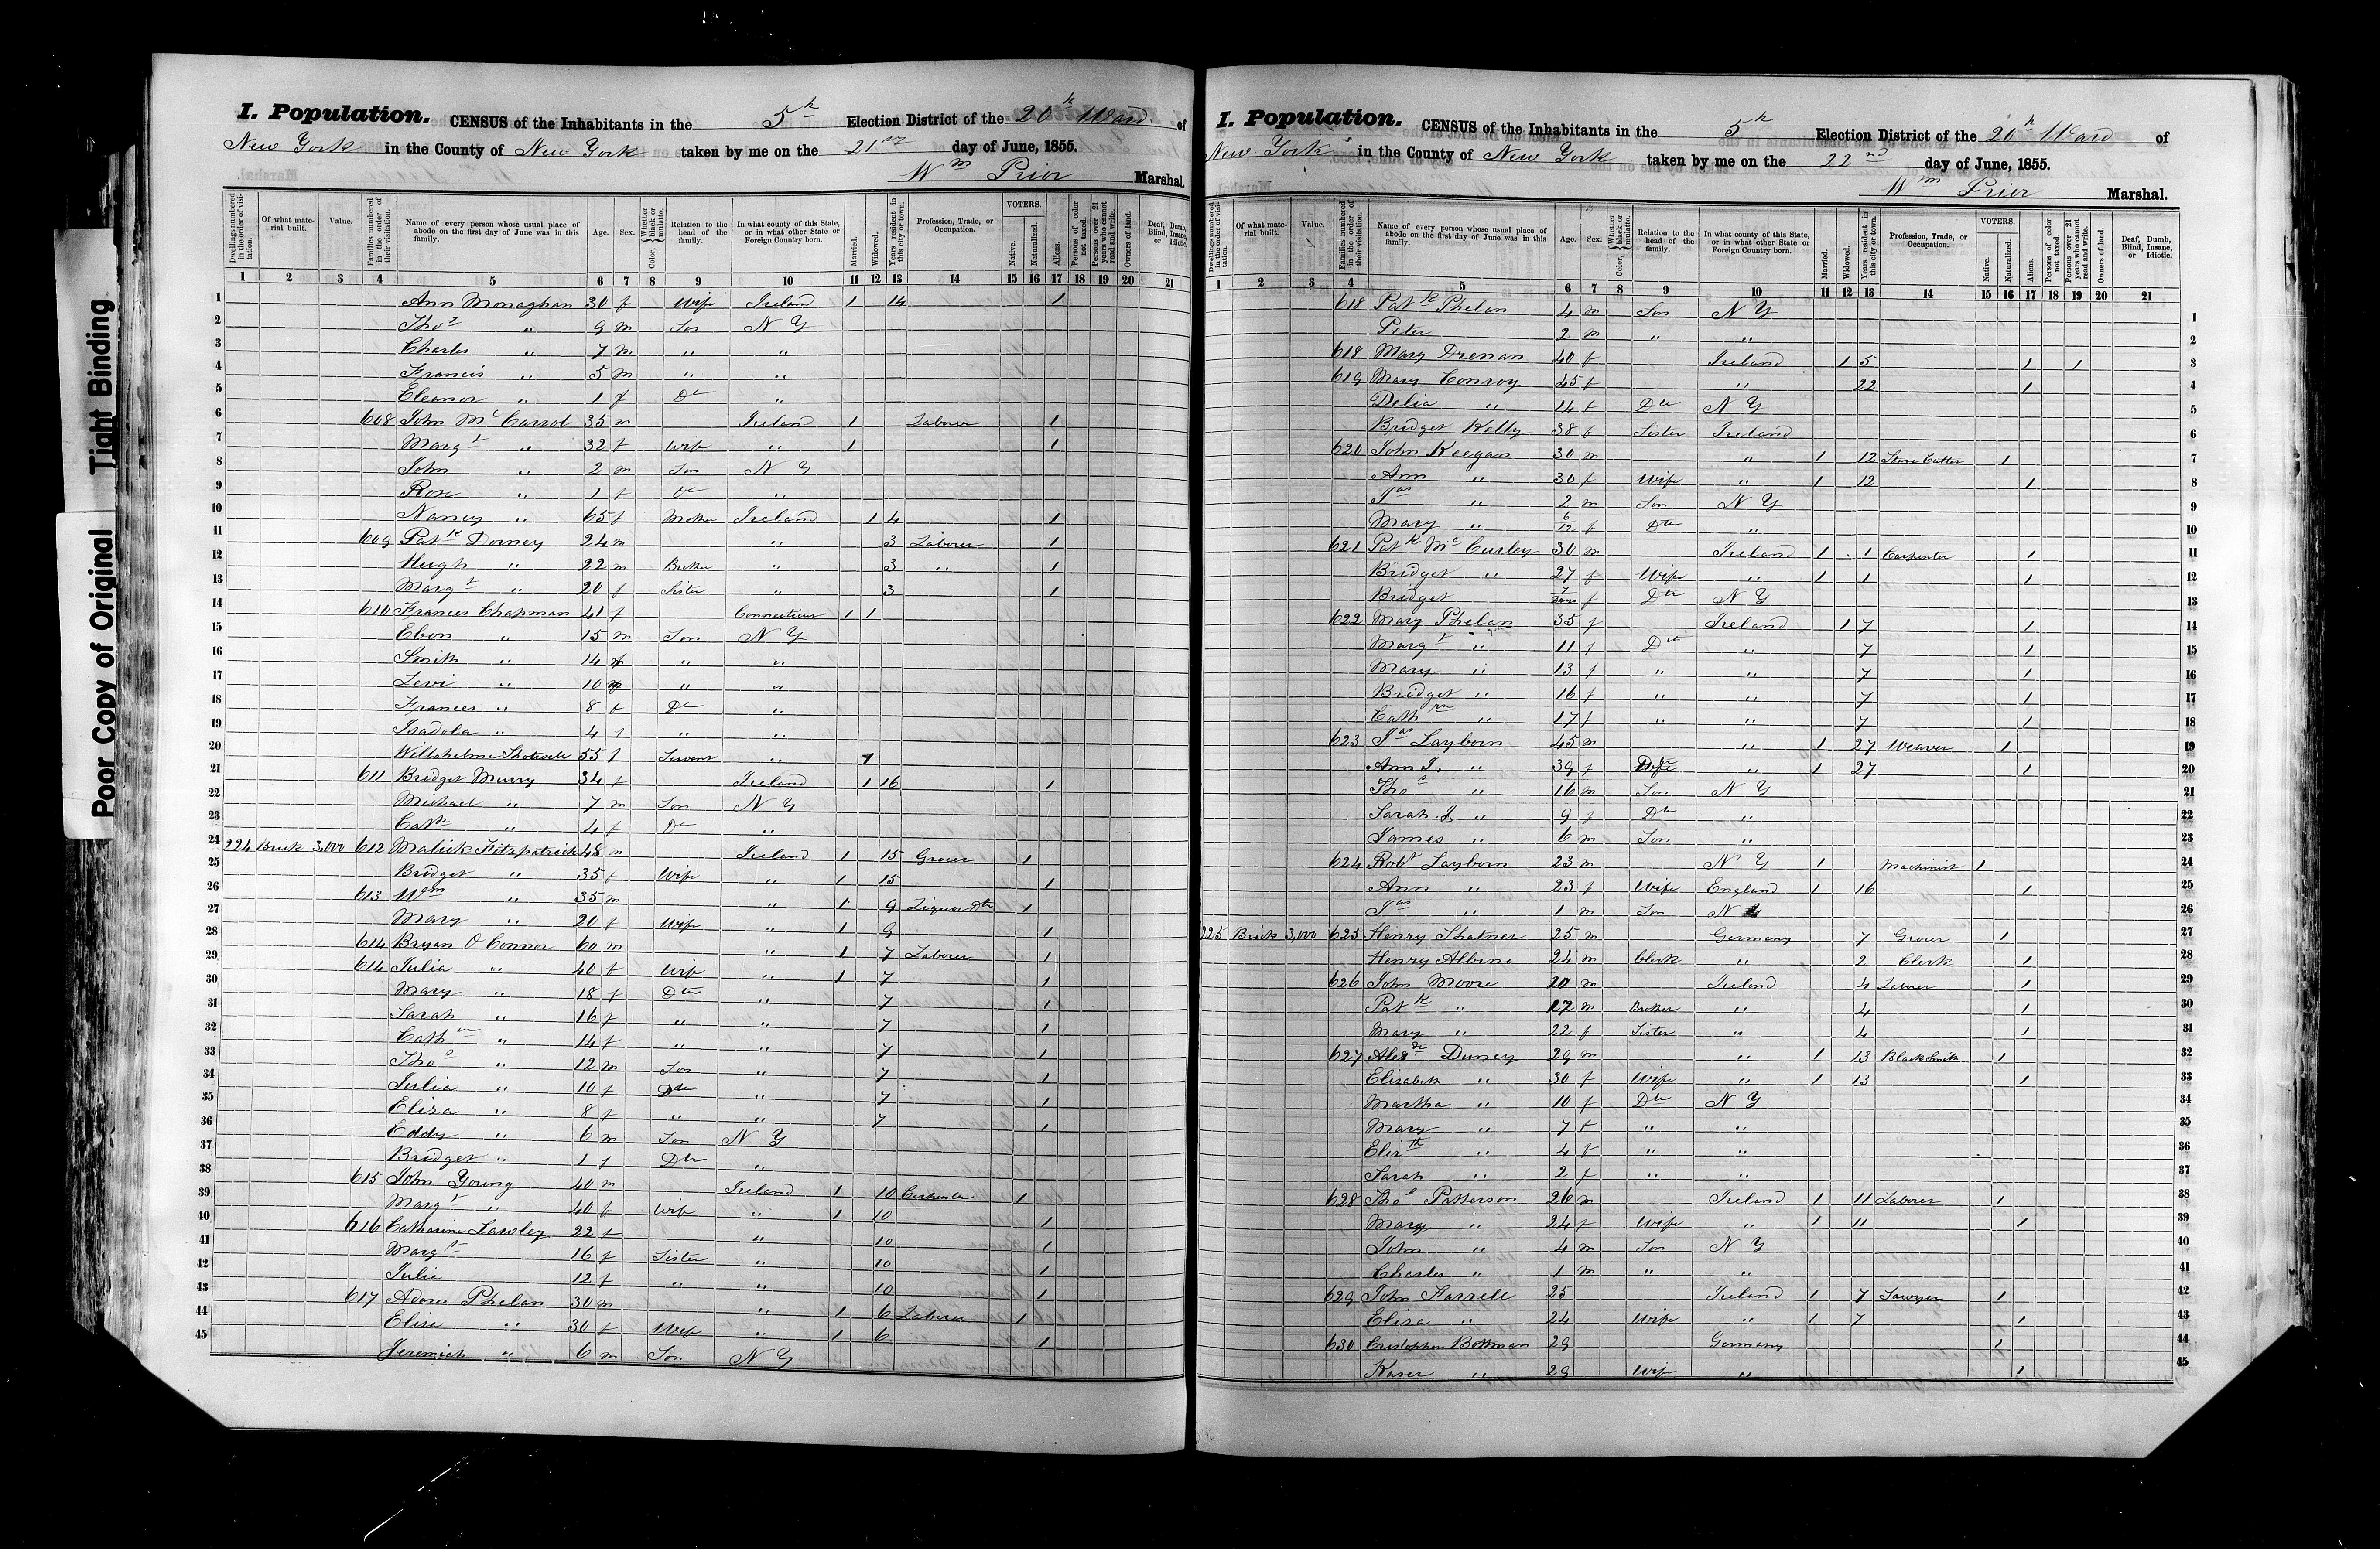 Poor Copy of Original Tight Binding
I. Population. CENSUS of the Inhabitants in the 5th Election District of the 20th Ward of
New York in the County of New York taken by me on the 21st day of June, 1855.
Wm Prior Marshal.
Dwellings numbered in the order of visitation. Of what material built. Value. Families numbered in the order of their visitation. Name of every person whose usual place of abode on the first day of June was in this family. Age. Sex. Color, Whether black or mulatto. Relation to the head of the family. In what county of this State, or in what other State or Foreign Country born. Married. Widowed. Years resident in this city or town. Profession, Trade, or Occupation. VOTERS. Native. Naturalized. Aliens. Persons of color not taxed. Persons over 21 years who cannot read and write. Owners of land. Deaf, Dumb, Blind, Insane, or Idiotic.
1 2 3 4 5 6 7 8 9 10 11 12 13 14 15 16 17 18 19 20 21
1 Ann Monaghan 30 f Wife Ireland 1 14 1
2 Thos " 9 m Son N Y
3 Charles " 7 m " "
4 Francis " 5 m " "
5 Eleanor " 1 f Dr "
6 608 John Mc Carrol 35 m Ireland 1 Laborer 1
7 Margt " 32 f Wife " 1 1
8 John " 2 m Son N Y
9 Rose " 1 f Dr "
10 Nancy " 65 f Mother Ireland 1 4 1
11 609 Patk Dorney 24 m " 3 Laborer 1
12 Hugh " 22 m Brother " 3 " 1
13 Margt " 20 f Sister " 3 1
14 610 Frances Chapman 41 f Connecticut 1 1
15 Ebon " 15 m Son N Y
16 Smith " 14 " "
17 Levi " 10 " "
18 Frances " 8 f Dr "
19 Isadola " 4 f " "
20 55 f Servant "
21 611 Bridget Murry 34 f Ireland 1 16 1
22 Michael " 7 m Son N Y
23 Cath " 4 f Dr "
24 224 Brick 3,000 612 Malick Fitzpatrick 48 m Ireland 1 15 Grocer 1
25 Bridget " 35 f Wife " 1 15 1
26 613 Wm " 35 m " 1 9 Liquor Dlr 1
27 Mary " 20 f Wife " 1 9 1
28 614 Bryan O Connor 60 m " 1 7 Laborer 1
29 614 Julia " 40 f Wife " 1 7 1
30 Mary " 18 f Dtr " 7 1
31 Sarah " 16 f " " 7 1
32 Cathn " 14 f " " 7 1
33 Thos " 12 m Son " 7 1
34 Julia " 10 f Dtr " 7 1
35 Eliza " 8 f " " 7 1
36 Eddy " 6 m Son N Y
37 Bridget " 1 f Dtr "
38 615 John Young 40 m Ireland 1 10 Carpenter 1
39 Margt " 40 f Wife " 1 10 1
40 616 Catharine Lawley 22 f " 10 1
41 Margt 16 f Sister " 10 1
42 Julia 12 f " " 10 1
43 617 Adam Phelan 30 m " 1 6 Laborer 1
44 Eliza " 30 f Wife " 1 6 1
45 Jeremiah " 6 m Son N Y
I. Population. CENSUS of the Inhabitants in the 5th Election District of the 20th Ward of
New York in the County of New York taken by me on the 22nd day of June, 1855.
Wm Prior Marshal.
Dwellings numbered in the order of visitation. Of what material built. Value. Families numbered in the order of their visitation. Name of every person whose usual place of abode on the first day of June was in this family. Age. Sex. Color, Whether black or mulatto. Relation to the head of the family. In what county of this State, or in what other State or Foreign Country born. Married. Widowed. Years resident in this city or town. Profession, Trade, or Occupation. VOTERS. Native. Naturalized. Aliens. Persons of color not taxed. Persons over 21 years who cannot read and write. Owners of land. Deaf, Dumb, Blind, Insane, or Idiotic.
1 2 3 4 5 6 7 8 9 10 11 12 13 14 15 16 17 18 19 20 21
618 Patk Phelan 4 m Son N Y 1
Peter 2 m " " 2
618 Mary Drenan 40 f Ireland 1 5 1 1 3
619 Mary Conroy 45 f " 22 1 4
Delia " 14 f Dtr N Y 5
Bridget Kelly 38 f Sister Ireland 6
620 John Keegan 30 m " 1 12 Stone Cutter 1 7
Ann " 30 f Wife " 1 12 1 8
Jas " 2 m Son N Y 9
Mary " 6/12 f Dtr " 10
621 Patk Mc Curley 30 m Ireland 1 1 Carpenter 1 11
Bridget " 27 f Wife " 1 1 1 12
Bridget 7 Days f Dtr N Y 13
622 Mary Phelan 35 f Ireland 1 7 1 14
Margt " 11 f Dtr " 7 1 15
Mary " 13 f " " 7 1 16
Bridget " 16 f " " 7 1 17
Cathrn " 17 f " " 7 1 18
623 Jas Layborn 45 m " 1 27 Weaver 1 19
Ann J. " 39 f Wife " 1 27 1 20
Thos " 16 m Son N Y 21
Sarah J " 9 f Dtr " 22
James " 6 m Son " 23
624 Robt Layborn 23 m N Y 1 Machinist 1 24
Ann " 23 f Wife England 1 16 1 25
Jas " 1 m Son N Y 26
225 Brick 3,000 625 Henry Shatner 25 m Germany 7 Grocer 1 27
Henry Albine 24 m Clerk " 2 Clerk 1 28
626 John Moore 20 m Ireland 4 Laborer 1 29
Patk " 17 m Brother " 4 1 30
Mary " 22 f Sister " 4 1 31
627 Alexdr Dunsey 29 m " 1 13 Black Smith 1 32
Elizabeth " 30 f Wife " 1 13 1 33
Martha " 10 f Dtr N Y 34
Mary " 7 f " " 35
Elizth " 4 f " " 36
Sarah " 2 f " " 37
628 Thos Patterson 26 m Ireland 1 11 Laborer 1 38
Mary " 24 f Wife " 1 11 1 39
John " 4 m Son N Y 40
Charles " 1 m " " 41
629 John Farrell 25 Ireland 1 7 Sawyer 1 42
Eliza " 24 Wife " 1 7 1 43
630 Cristopher Bottman 29 Germany 1 44
Kaser " 29 Wife " 1 45